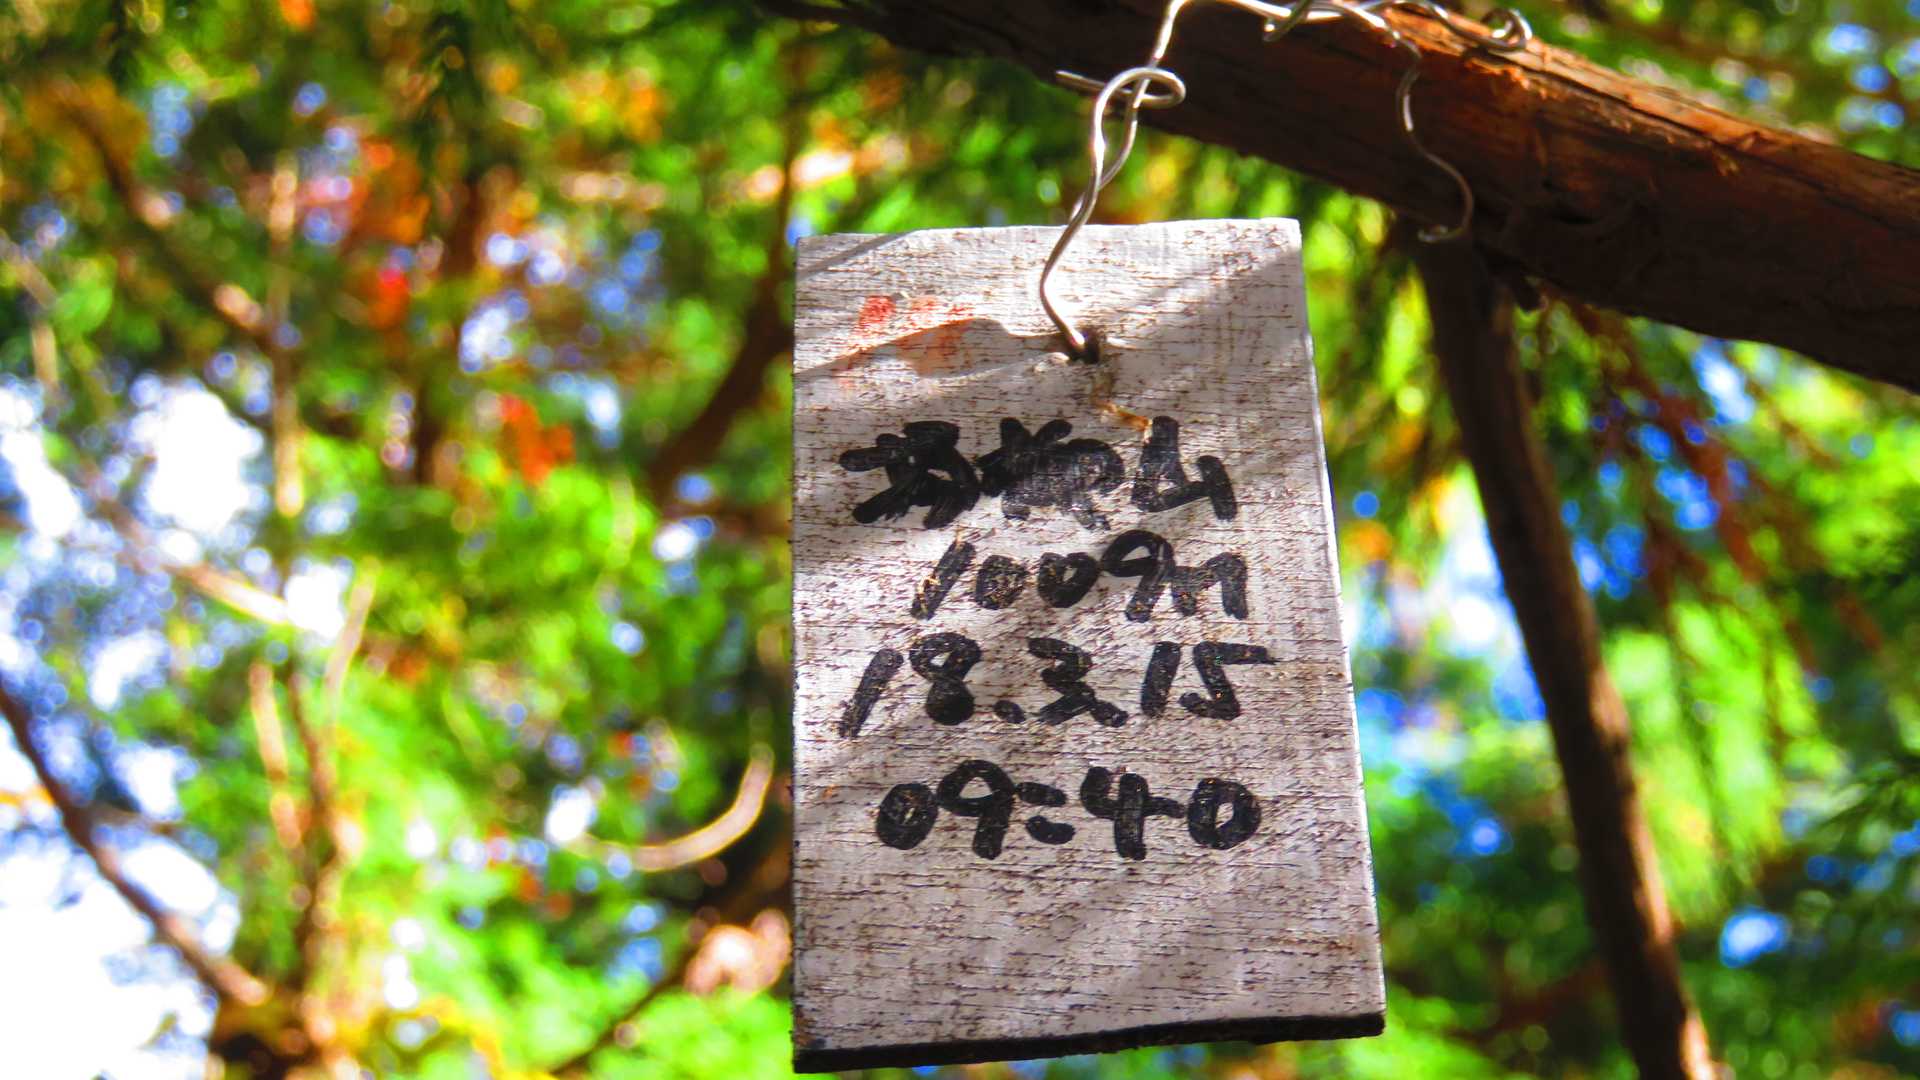 山
1009m
18.3.15
09:40